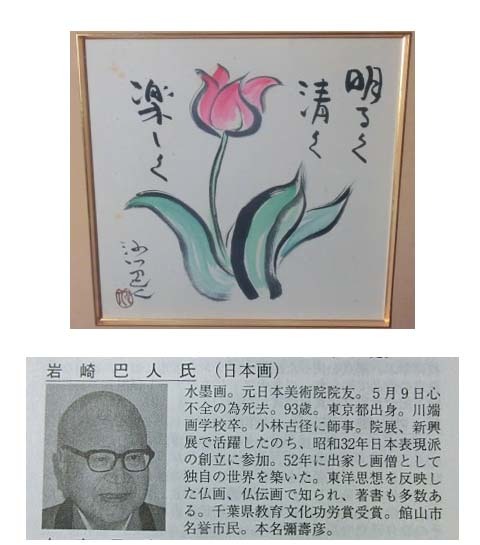 明るく
清く
楽しく
沙門巴人
岩崎巴人氏(日本画)
水墨画。元日本美術院院友。5月9日心
不全の為死去。93歳。東京都出身。川端
画学校卒。小林古径に師事。院展、新興
展で活躍したのち、昭和32年日本表現派
の創立に参加。52年に出家し画僧として
独自の世界を築いた。東洋思想を反映し
た仏画、仏伝画で知られ、著書も多数あ
る。千葉県教育文化功労賞受賞。館山市
名誉市民。本名彌壽彦。